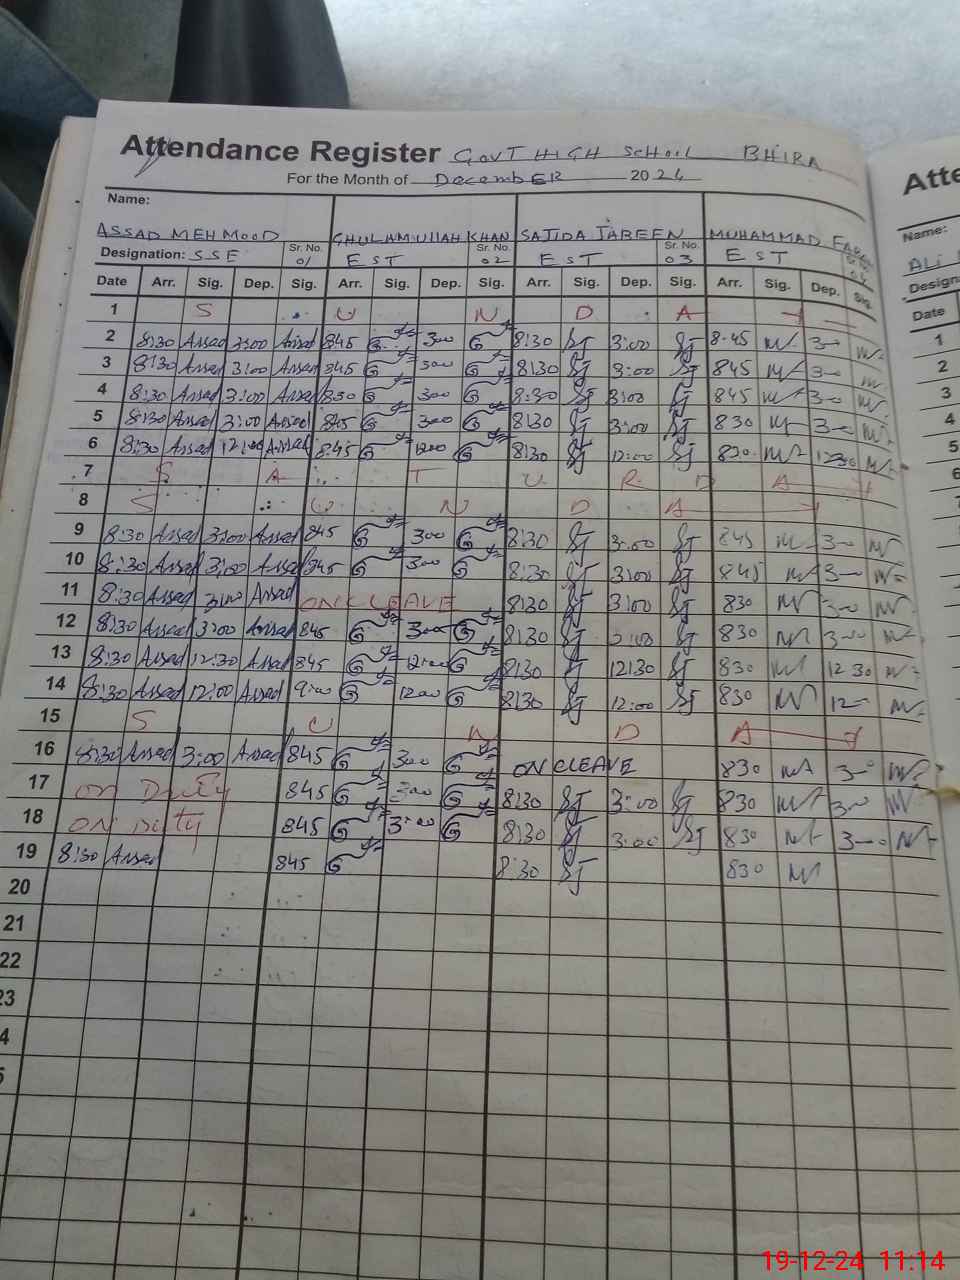 Attendance Register GOVT HIGH SCHOOL BHIRA
For the Month of DECEMBER 2024
Name:
ASSAD MEHMOOD GHULAMULLAH KHAN SAJIDA JABEEN MUHAMMAD
Designation: SSE Sr. No. 01 EST Sr. No. 02 EST Sr. No. 03 EST
Date Arr. Sig. Dep. Sig. Arr. Sig. Dep. Sig. Arr. Sig. Dep. Sig. Arr. Sig. Dep. Sig.
1 S U N D A Y
2 8:30 Assad 3:00 Assad 845 G 300 G 8:30 SJ 3:00 SJ 8.45 3-
3 8:30 Assad 3:00 Assad 845 G 300 G 8:30 SJ 3:00 SJ 845 3-
4 8:30 Assad 3:00 Assad 830 G 300 G 8:30 SJ 3:00 SJ 845 3-
5 8:30 Assad 3:00 Assad 845 G 300 G 8:30 SJ 3:00 SJ 830 3-
6 8:30 Assad 12:00 Assad 8:45 G 1200 G 8:30 SJ 12:00 SJ 830 1230
7 S A T U R D A Y
8 S U N D A Y
9 8:30 Assad 3:00 Assad 845 G 300 G 8:30 SJ 3:00 SJ 845 3-
10 8:30 Assad 3:00 Assad 845 G 300 G 8:30 SJ 3:00 SJ 845 3-
11 8:30 Assad 3:00 Assad ON CLEAVE 8:30 SJ 3:00 SJ 830 3-
12 8:30 Assad 3:00 Assad 845 G 300 G 8:30 SJ 3:00 SJ 830 3-
13 8:30 Assad 12:30 Assad 845 G 12:00 G 8:30 SJ 12:30 SJ 830 12 30
14 8:30 Assad 12:00 Assad 9:00 G 1200 G 8:30 SJ 12:00 SJ 830 12-
15 S U N D A Y
16 8:30 Assad 3:00 Assad 845 G 300 G ON CLEAVE 830 3-
17 on Duty 845 G 300 G 8:30 SJ 3:00 SJ 830 3-
18 ON Duty 845 G 3:00 G 8:30 SJ 3:00 SJ 830 3-
19 8:30 Assad 845 G 8:30 SJ 830
20
21
22
23
4
5
Atte
Name:
ALI
Design
Date
1
2
3
4
5
6
19-12-24 11:14